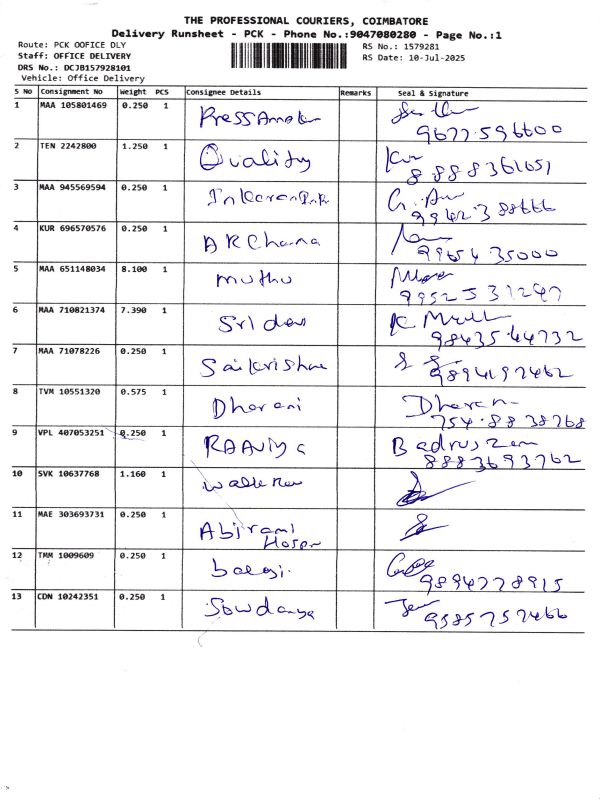 THE PROFESSIONAL COURIERS, COIMBATORE
Delivery Runsheet - PCK - Phone No.:9047080280 - Page No.:1
Route: PCK OOFICE DLY
RS No.: 1579281
Staff: OFFICE DELIVERY
RS Date: 10-Jul-2025
DRS No.: DCJB157928101
Vehicle: Office Delivery
S No Consignment No Weight PCS Consignee Details Remarks Seal & Signature
1 MAA 105801469 0.250 1
9677596600
2 TEN 2242800 1.250 1 Quality
8888361651
3 MAA 945569594 0.250 1
9942388666
4 KUR 696570576 0.250 1 AR Chama
9965435000
5 MAA 651148034 8.100 1 muthu
9952531247
6 MAA 710821374 7.390 1 Sri devi
9843544732
7 MAA 71078226 0.250 1 Saikrishna
9894197462
8 TVM 10551320 0.575 1 Dharani Dharan
754.8838768
9 VPL 407053251 0.250 1
8883693762
10 SVK 10637768 1.160 1
11 MAE 303693731 0.250 1 Abirami
Hospi
12 TMM 1009609 0.250 1 balaji
9894778915
13 CDN 10242351 0.250 1 Sowdanya
9585757466